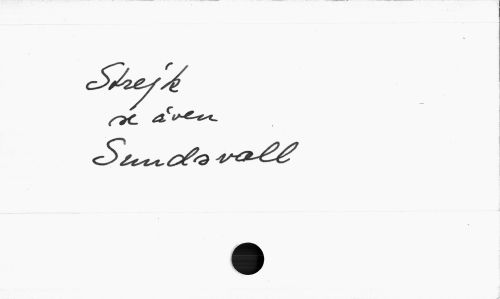 Strejk
se även
Sundsvall